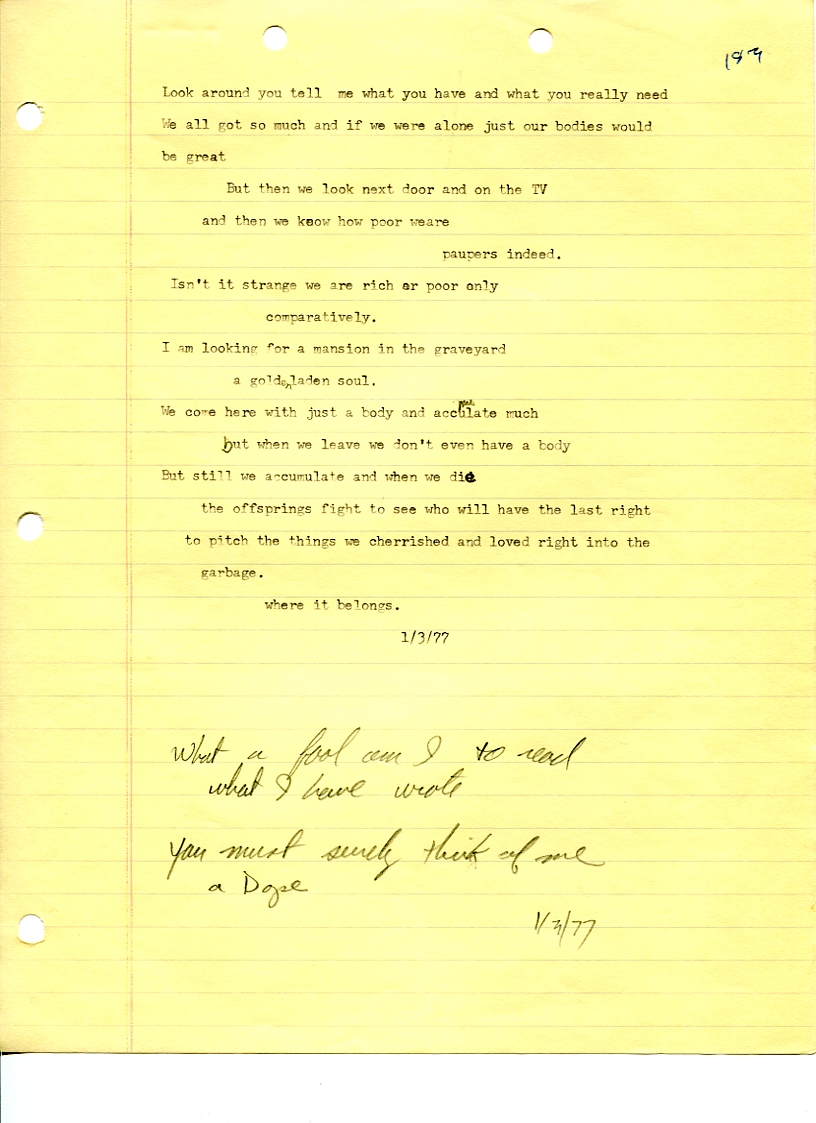 189
Look around you tell me what you have and what you really need
We all got so much and if we were alone just our bodies would
be great
But then we look next door and on the TV
and then we know how poor weare
paupers indeed.
Isn't it strange we are rich or poor only
comparatively.
I am looking for a mansion in the graveyard
a golden laden soul.
We come here with just a body and accumulate much
but when we leave we don't even have a body
But still we accumulate and when we die
the offsprings fight to see who will have the last right
to pitch the things we cherrished and loved right into the
garbage.
where it belongs.
1/3/77
What a fool am I to read
what I have wrote
You must surely think of me
a Dope
1/3/77